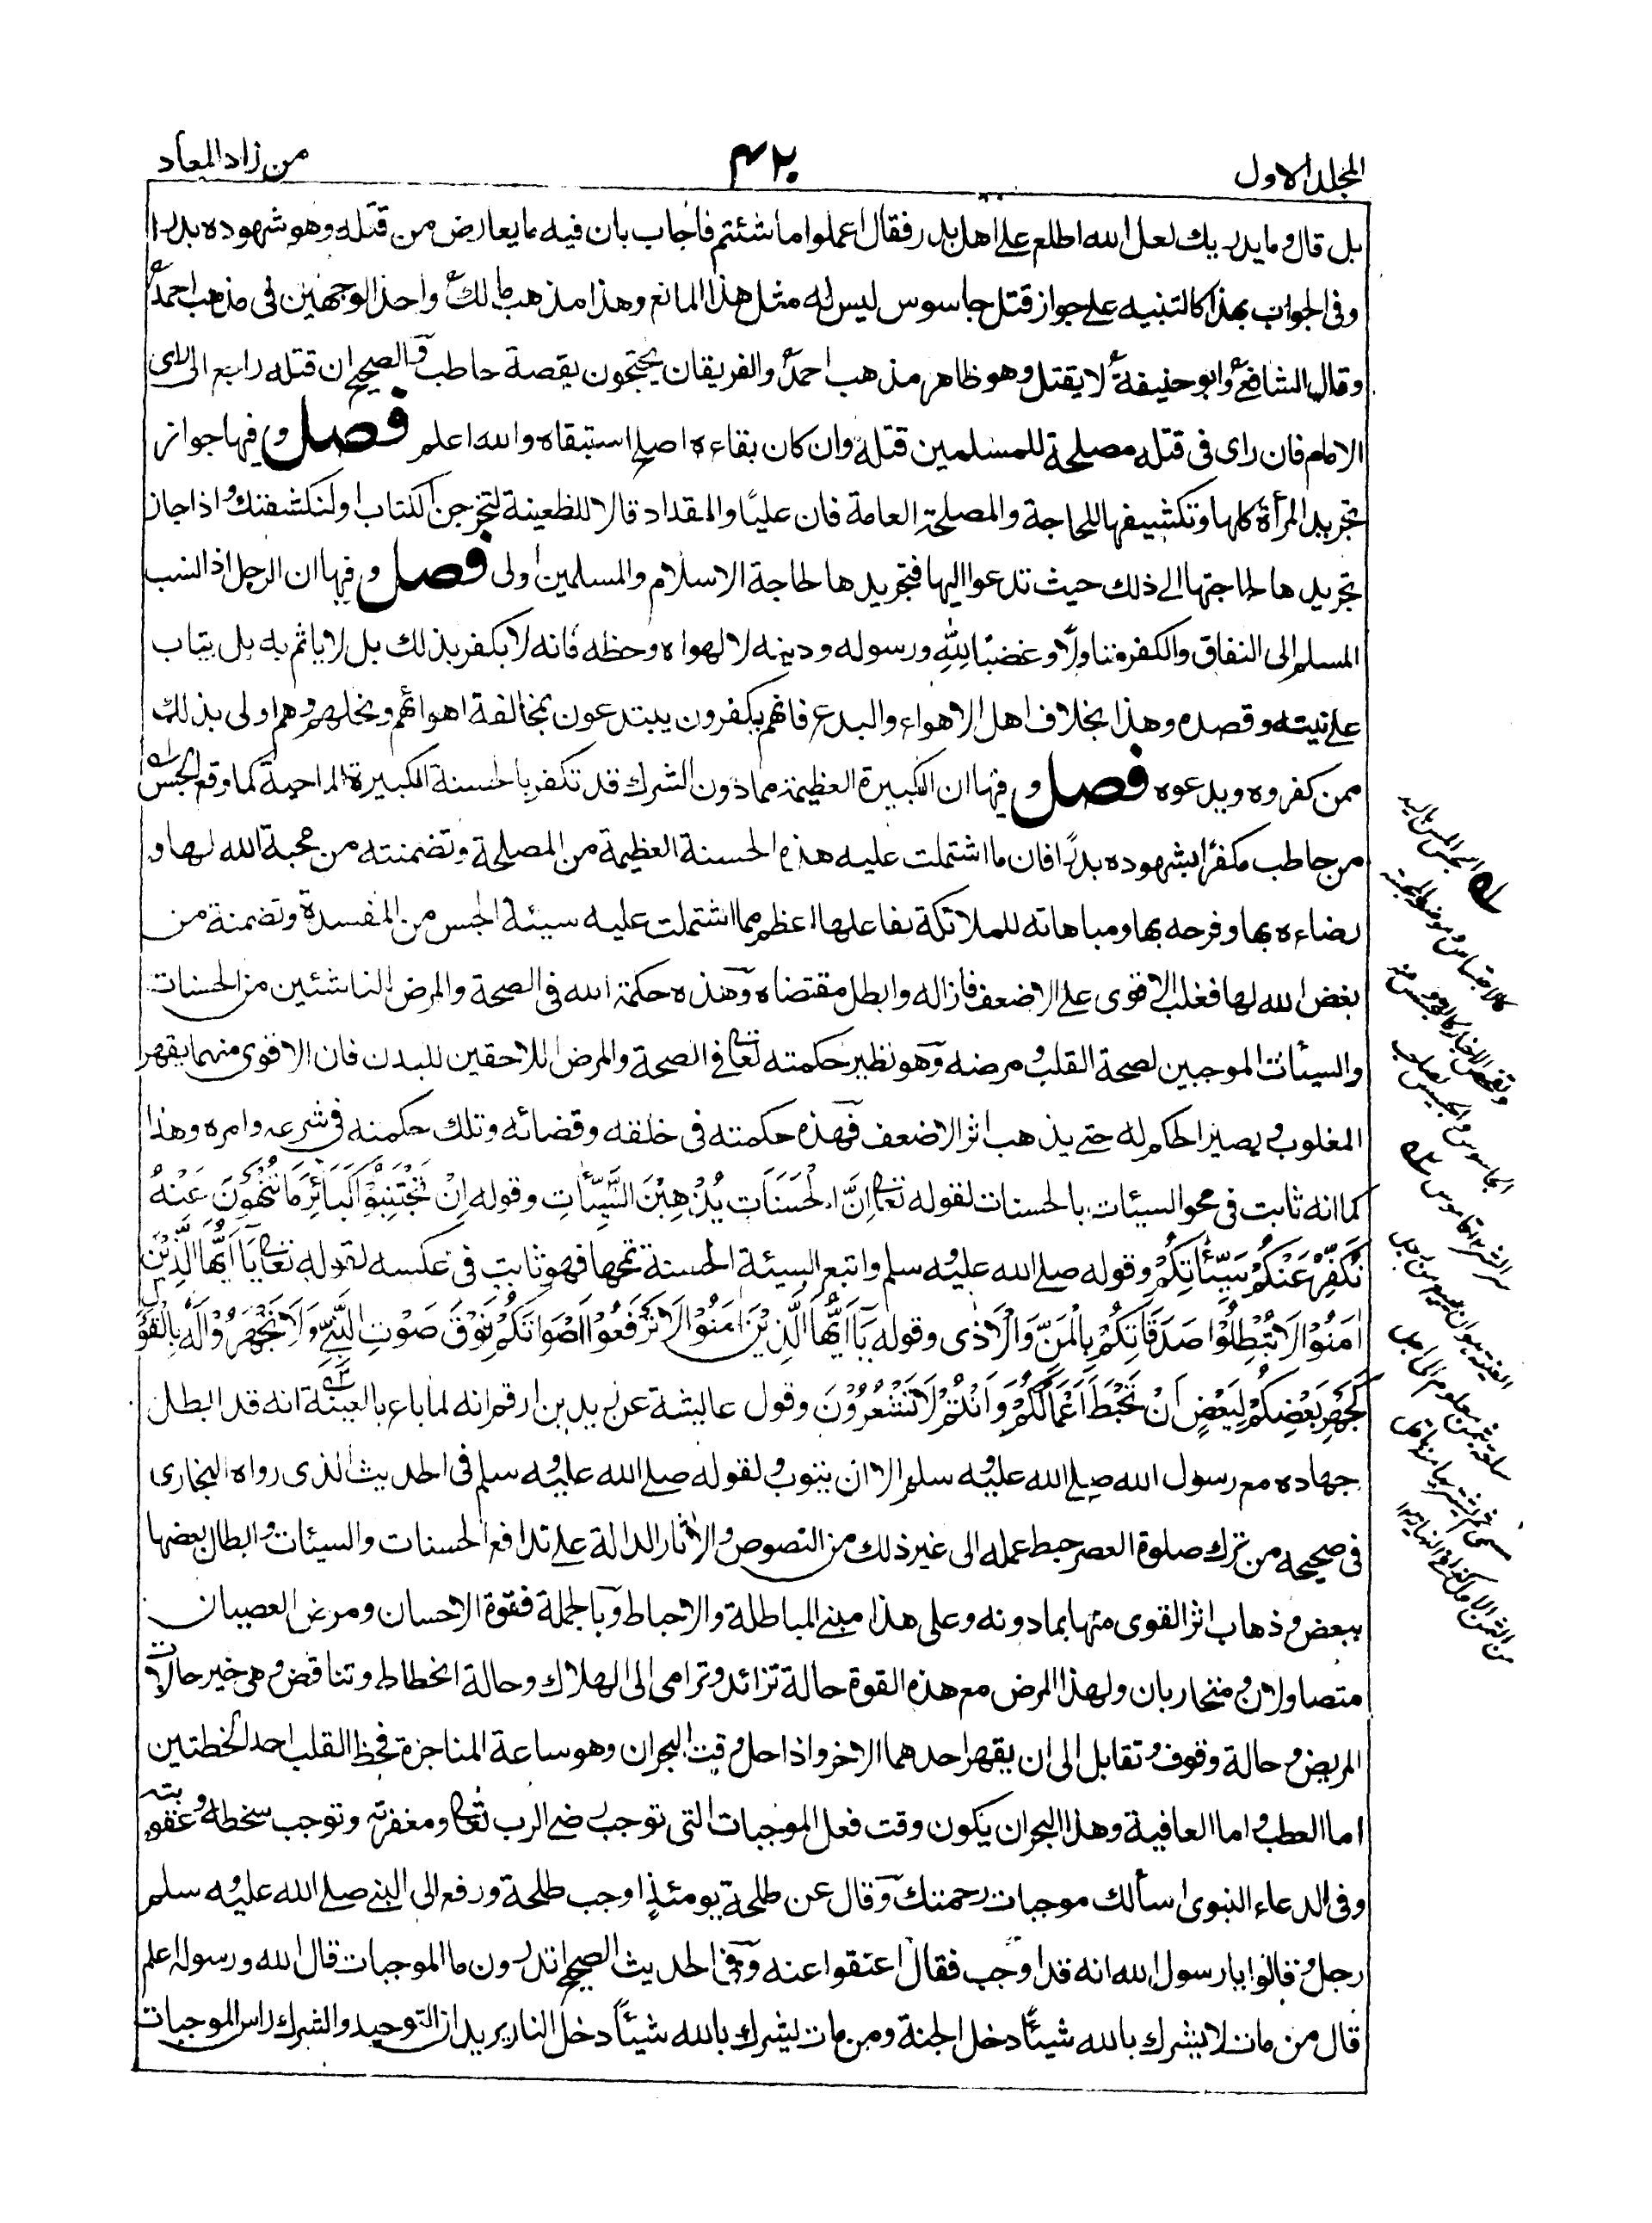 المجلد الاول
۴۲۰
من زاد المعاد
بل قال وما يدريك لعل الله اطلع على اهل بدر فقال اعملوا ما شئتم فاجاب بان فيه ما يعارض من قتله وهو شهوده بدرا
وفى الجواب بهذا كالتنبيه على جواز قتل جاسوس ليس له مثل هذا المانع وهذا مذهب مالك واحد الوجهين فى مذهب احمد
وقال الشافعى وابو حنيفة لا يقتل وهو ظاهر مذهب احمد والفريقان يحتجون بقصة حاطب والصحيح ان قتله راجع الى راى
الامام فان راى فى قتله مصلحة للمسلمين قتله وان كان بقاءه اصلح استبقاه والله اعلم فصل وفيها جواز
تجريد المرأة كلها وتكشيفها للحاجة والمصلحة العامة فان عليًا والمقداد قالا للظعينة لتخرجن الكتاب او لنكشفنك واذا جاز
تجريدها لحاجتها الى ذلك حيث تدعوا اليها فتجريدها لحاجة الاسلام والمسلمين اولى فصل وفيها ان الرجل اذا نسب
المسلم الى النفاق والكفر متاولًا وغضبًا لِلّٰهِ ورسوله ودينه لا لهواه وحظه فانه لا يكفر بذلك بل لا ياثم به بل يثاب
على نيته وقصده وهذا بخلاف اهل الاهواء والبدع فانهم يكفرون يبتدعون بمخالفة اهوائهم ونحلهم وهم اولى بذلك
ممن كفروه وبدعوه فصل وفيها ان الكبيرة العظيمة مما دون الشرك قد تكفر بالحسنة الكبيرة الماحية كما وقع الجس
من حاطب مكفرًا بشهوده بدرًا فان ما اشتملت عليه هذه الحسنة العظيمة من المصلحة وتضمنته من محبة الله لها و
رضاءه بها وفرحه بها ومباهاته للملائكة بفاعلها اعظم مما اشتملت عليه سيئة الجس من المفسدة وتضمنة من
بغض الله لها فغلب الاقوى على الاضعف فازاله وابطل مقتضاه وهذه حكمة الله فى الصحة والمرض الناشئين من الحسنات
والسيئات الموجبين لصحة القلب ومرضه وهو نظير حكمته تعالى فى الصحة والمرض اللاحقين للبدن فان الاقوى منهما يقهر
المغلوب ويصير الحكم له حتى يذهب اثر الاضعف فهذه حكمته فى خلقه وقضائه وتلك حكمته فى شرعه وامره وهذا
كما انه ثابت فى محو السيئات بالحسنات لقوله تعالى اِنَّ الْحَسَنَاتِ يُذْهِبْنَ السَّيِّئَاتِ وقوله اِنْ تَجْتَنِبُوْا كَبَائِرَ مَا تُنْهَوْنَ عَنْهُ
نُكَفِّرْ عَنْكُمْ سَيِّئَاتِكُمْ وقوله صلى الله عليه وسلم واتبع السيئة الحسنة تمحها فهو ثابت فى عكسه لقوله تعالى يَا اَيُّهَا الَّذِيْنَ
اٰمَنُوْا لَا تُبْطِلُوْا صَدَقَاتِكُمْ بِالْمَنِّ وَالْاَذٰى وقوله يَا اَيُّهَا الَّذِيْنَ اٰمَنُوْا لَا تَرْفَعُوْا اَصْوَاتَكُمْ فَوْقَ صَوْتِ النَّبِيِّ وَلَا تَجْهَرُوْا لَهُ بِالْقَوْلِ
كَجَهْرِ بَعْضِكُمْ لِبَعْضٍ اَنْ تَحْبَطَ اَعْمَالُكُمْ وَاَنْتُمْ لَا تَشْعُرُوْنَ وقول عايشة عن زيد بن ارقم انه لما باع بالعينة انه قد ابطل
جهاده مع رسول الله صلى الله عليه وسلم الا ان يتوب ولقوله صلى الله عليه وسلم فى الحديث الذى رواه البخارى
فى صحيحه من ترك صلوة العصر حبط عمله الى غير ذلك من النصوص والاثار الدالة على تدافع الحسنات والسيئات وابطال بعضها
ببعض وذهاب اثر القوى منها بما دونه وعلى هذا مبنى المباطلة والاحباط وبالجملة فقوة الاحسان ومرض العصيان
متصاولان ومتحاربان ولهذا المرض مع هذه القوة حالة تزائد وترامى الى الهلاك وحالة انحطاط وتناقض وهى خير حالات
المريض وحالة وقوف وتقابل الى ان يقهر احدهما الاخر واذا حل وقت البحران وهو ساعة المناجزة فحظ القلب احد الخطتين
اما العطب واما العافية وهذا البحران يكون وقت فعل الموجبات التى توجب رضى الرب تعالى ومغفرته وتوجب سخطه وعقوبته
وفى الدعاء النبوى اسألك موجبات رحمتك وقال عن طلحة يومئذٍ اوجب طلحة ورفع الى النبى صلى الله عليه وسلم
رجل وقالوا يا رسول الله انه قد اوجب فقال اعتقوا عنه وفى الحديث الصحيح اتدرون ما الموجبات قال الله ورسوله اعلم
قال من مات لا يشرك بالله شيئًا دخل الجنة ومن مات يشرك بالله شيئًا دخل النار يريد ان التوحيد والشرك راس الموجبات